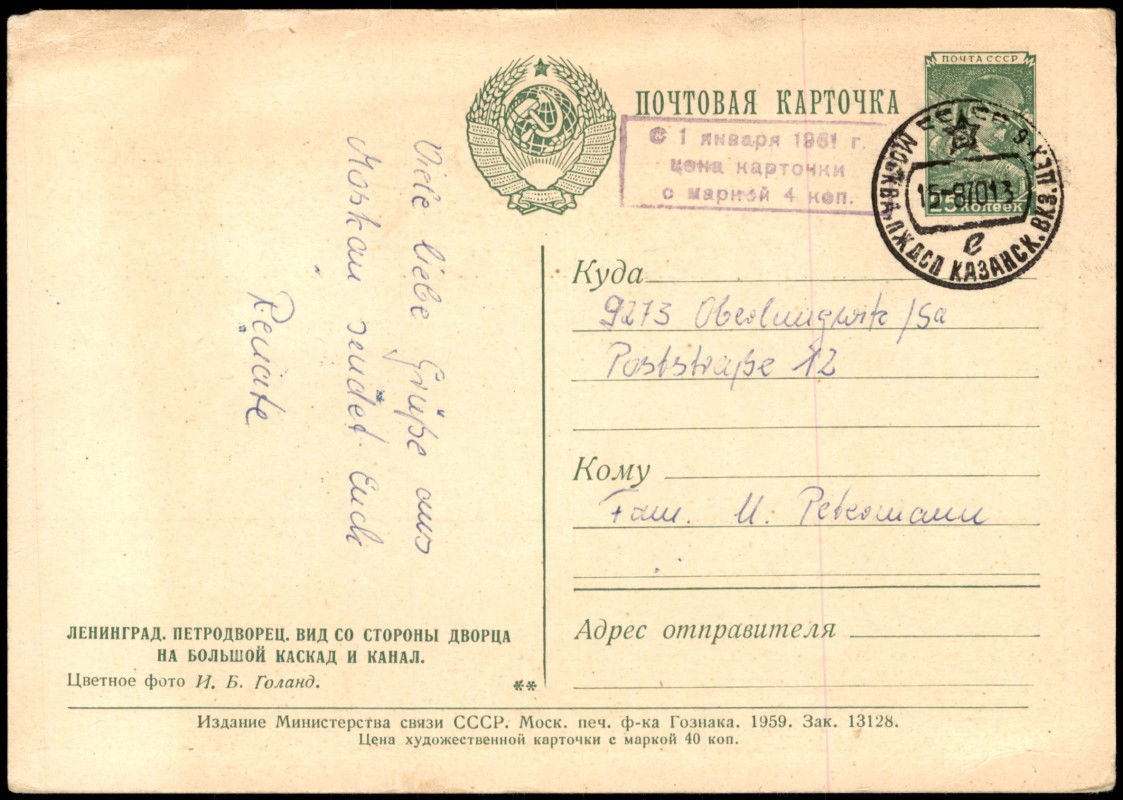 ПОЧТОВАЯ КАРТОЧКА
ПОЧТА СССР
25 копеек
С 1 января 1961 г.
цена карточки
с маркой 4 коп.
МОСКВА, П.ЖДСП КАЗАНСК. ВКЗ.
СССР
15-87013
е
Viele liebe Grüße aus
Moskau sendet Euch
Renate
Куда
9273 Oberlungwitz /Sa
Poststraße 12
Кому
Fam. M. Petermann
Адрес отправителя
ЛЕНИНГРАД. ПЕТРОДВОРЕЦ. ВИД СО СТОРОНЫ ДВОРЦА
НА БОЛЬШОЙ КАСКАД И КАНАЛ.
Цветное фото И. Б. Голанд.
**
Издание Министерства связи СССР. Моск. печ. ф-ка Гознака. 1959. Зак. 13128.
Цена художественной карточки с маркой 40 коп.